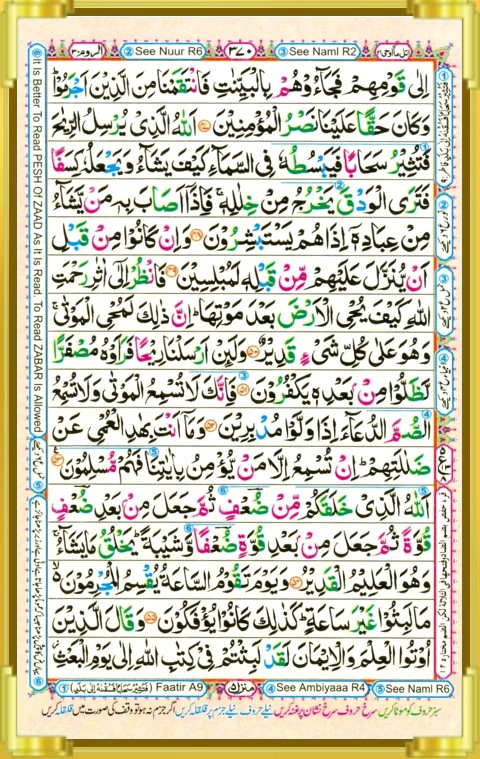 الروم ٣٠ ② See Nuur R6 ٣٧٠ ③ See Naml R2 اتل ما اوحی ٢١
اِلٰى قَوْمِهِمْ فَجَآءُوْهُمْ بِالْبَيِّنٰتِ فَانْتَقَمْنَا مِنَ الَّذِيْنَ اَجْرَمُوْا ؕ
وَكَانَ حَقًّا عَلَيْنَا نَصْرُ الْمُؤْمِنِيْنَ ﴿٤٧﴾ اَللّٰهُ الَّذِىْ يُرْسِلُ الرِّيٰحَ
فَتُثِيْرُ سَحَابًا فَيَبْسُطُهٗ فِى السَّمَآءِ كَيْفَ يَشَآءُ وَيَجْعَلُهٗ كِسَفًا
فَتَرَى الْوَدْقَ يَخْرُجُ مِنْ خِلٰلِهٖ ۚ فَاِذَآ اَصَابَ بِهٖ مَنْ يَّشَآءُ
مِنْ عِبَادِهٖٓ اِذَا هُمْ يَسْتَبْشِرُوْنَ ﴿٤٨﴾ وَاِنْ كَانُوْا مِنْ قَبْلِ
اَنْ يُّنَزَّلَ عَلَيْهِمْ مِّنْ قَبْلِهٖ لَمُبْلِسِيْنَ ﴿٤٩﴾ فَانْظُرْ اِلٰٓى اٰثٰرِ رَحْمَتِ
اللّٰهِ كَيْفَ يُحْىِ الْاَرْضَ بَعْدَ مَوْتِهَا ؕ اِنَّ ذٰلِكَ لَمُحْىِ الْمَوْتٰى ۚ
وَهُوَ عَلٰى كُلِّ شَىْءٍ قَدِيْرٌ ﴿٥٠﴾ وَلَئِنْ اَرْسَلْنَا رِيْحًا فَرَاَوْهُ مُصْفَرًّا
لَّظَلُّوْا مِنْۢ بَعْدِهٖ يَكْفُرُوْنَ ﴿٥١﴾ فَاِنَّكَ لَا تُسْمِعُ الْمَوْتٰى وَلَا تُسْمِعُ
الصُّمَّ الدُّعَآءَ اِذَا وَلَّوْا مُدْبِرِيْنَ ﴿٥٢﴾ وَمَآ اَنْتَ بِهٰدِ الْعُمْىِ عَنْ
ضَلٰلَتِهِمْ ؕ اِنْ تُسْمِعُ اِلَّا مَنْ يُّؤْمِنُ بِاٰيٰتِنَا فَهُمْ مُّسْلِمُوْنَ ﴿٥٣﴾
اَللّٰهُ الَّذِىْ خَلَقَكُمْ مِّنْ ضُعْفٍ ثُمَّ جَعَلَ مِنْۢ بَعْدِ ضُعْفٍ
قُوَّةً ثُمَّ جَعَلَ مِنْۢ بَعْدِ قُوَّةٍ ضُعْفًا وَّشَيْبَةً ؕ يَخْلُقُ مَا يَشَآءُ ۚ
وَهُوَ الْعَلِيْمُ الْقَدِيْرُ ﴿٥٤﴾ وَيَوْمَ تَقُوْمُ السَّاعَةُ يُقْسِمُ الْمُجْرِمُوْنَ ۙ
مَا لَبِثُوْا غَيْرَ سَاعَةٍ ؕ كَذٰلِكَ كَانُوْا يُؤْفَكُوْنَ ﴿٥٥﴾ وَقَالَ الَّذِيْنَ
اُوْتُوا الْعِلْمَ وَالْاِيْمَانَ لَقَدْ لَبِثْتُمْ فِىْ كِتٰبِ اللّٰهِ اِلٰى يَوْمِ الْبَعْثِ
It Is Better To Read PESH Of ZAAD As It Is Read. To Read ZABAR Is Allowed
① (فَتُثِيْرُ سَحَابًا فَسُقْنٰهُ اِلٰى بَلَدٍ) Faatir A9 منزل ٥ ④ See Ambiyaaa R4 ⑤ See Naml R6
سبز حروف کو موٹا کریں سرخ حروف سرخ نشان پر غنہ کریں نیلے حروف نیلے جزم پر قلقلہ کریں اگر جزم نہ ہو تو وقف کی صورت میں قلقلہ کریں